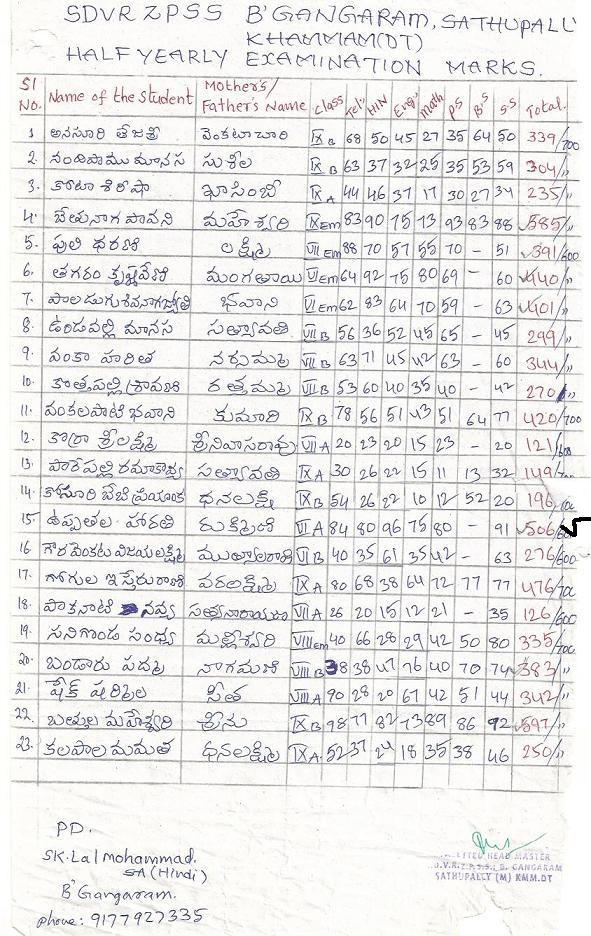 SDVR ZPSS B'GANGARAM, SATHUPALLI
KHAMMAM(DT)
HALF YEARLY EXAMINATION MARKS.
Sl No. Name of the student Mother's/ Father's Name Class Tel: HIN Eng: Math PS B^S S.S Total.
1 అనసూరి తేజశ్రీ వెంకటాచారి IX B 68 50 45 27 35 64 50 339/700
2. నందిపాము మానస సుశీల IX B 63 37 32 25 35 53 59 304/"
3. కోటా శిరీషా ఖాసింబీ IX A 44 46 37 17 30 27 34 235/"
4. చేతు నాగ పావని మహేశ్వరి IX Em 83 90 75 73 93 83 88 585/"
5. పులి ధరణి లక్ష్మి VII Em 88 70 57 55 70 - 51 391/600
6. తగరం కృష్ణవేణి మంగతాయి VI Em 64 92 75 80 69 - 60 440/"
7. పాలడుగు శివనాగజ్యోతి భవాని VI Em 62 83 64 70 59 - 63 401/"
8. ఉండవల్లి మానస సత్యావతి VII B 56 36 52 45 65 - 45 299/"
9. వంకా హరిత నర్సమ్మ VII B 63 71 45 42 63 - 60 344/"
10. కొత్తపల్లి శ్రావణి రత్తమ్మ VII B 53 60 40 35 40 - 42 270/"
11. వంకలపాటి భవాని కుమారి IX B 78 56 51 43 51 64 77 420/700
12. కొర్రా శ్రీలక్ష్మి శ్రీనివాసరావు VII A 20 23 20 15 23 - 20 121/600
13. పారేపల్లి రమాకావ్య సత్యావతి IX A 30 26 22 15 11 13 32 149/700
14. కోసూరి బేబి ప్రియాంక ధనలక్ష్మి IX B 54 26 22 10 12 52 20 196
15. ఉప్పతల హారతి రుక్మిణి VII A 84 80 96 75 80 - 91 506/600
16 గౌర వెంకట విజయలక్ష్మి ముత్యాలరాణి VI B 40 35 61 35 42 - 63 276/600
17. గోగుల ఇస్తేరురాణి వరలక్ష్మి IX A 80 68 38 64 72 77 77 476/700
18. పాకనాటి నవ్య సత్యనారాయణ VII A 26 20 15 12 21 - 35 126/600
19. సనిగొండ సంధ్య మల్లీశ్వరి VIII Em 40 66 28 29 42 50 80 335/700
20. బండారు పద్మ నాగమణి VIII B 38 38 47 76 40 70 74 383/"
21. షేక్ షర్మిల సీత VIII A 90 28 20 67 42 51 44 342/"
22. బత్తుల మహేశ్వరి శ్రీను IX B 98 77 82 73 89 86 92 597/"
23. కలపాల మమత ధనలక్ష్మి IX A 52 37 24 18 35 38 46 250/"
PD.
SK. Lal Mohammad.
SA (Hindi)
B'Gangaram.
phone: 9177927335
HEAD MASTER
D.V.R.Z.P.S.S., B. GANGARAM
SATHUPALLY (M) KMM.DT